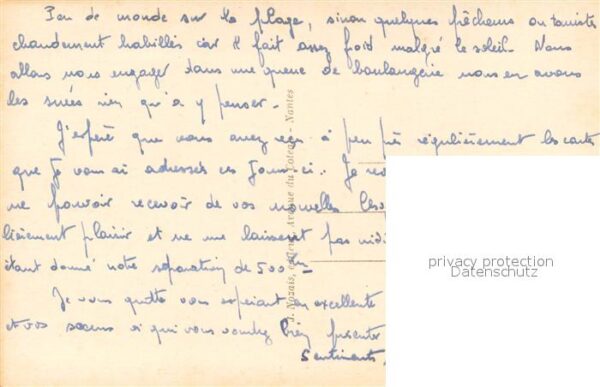 Peu de monde sur la plage, sinon quelques pêcheurs ou touristes
chaudement habillés car il fait assez froid malgré le soleil. Nous
allons nous engager dans une queue de boulangerie nous en avons
les suées rien qu'à y penser.
J'espère que vous avez reçu à peu près régulièrement les cartes
que je vous ai adressées ces jours-ci. Je
ne pouvoir recevoir de vos nouvelles
plaisir et ne me laisseraient pas
étant donné notre séparation de 500 km
Je vous quitte vous espérant en excellente
et vos soeurs à qui vous voudrez bien présenter
Sentiments,
J. Nozais, éditeur, Avenue du Coteau - Nantes
privacy protection
Datenschutz